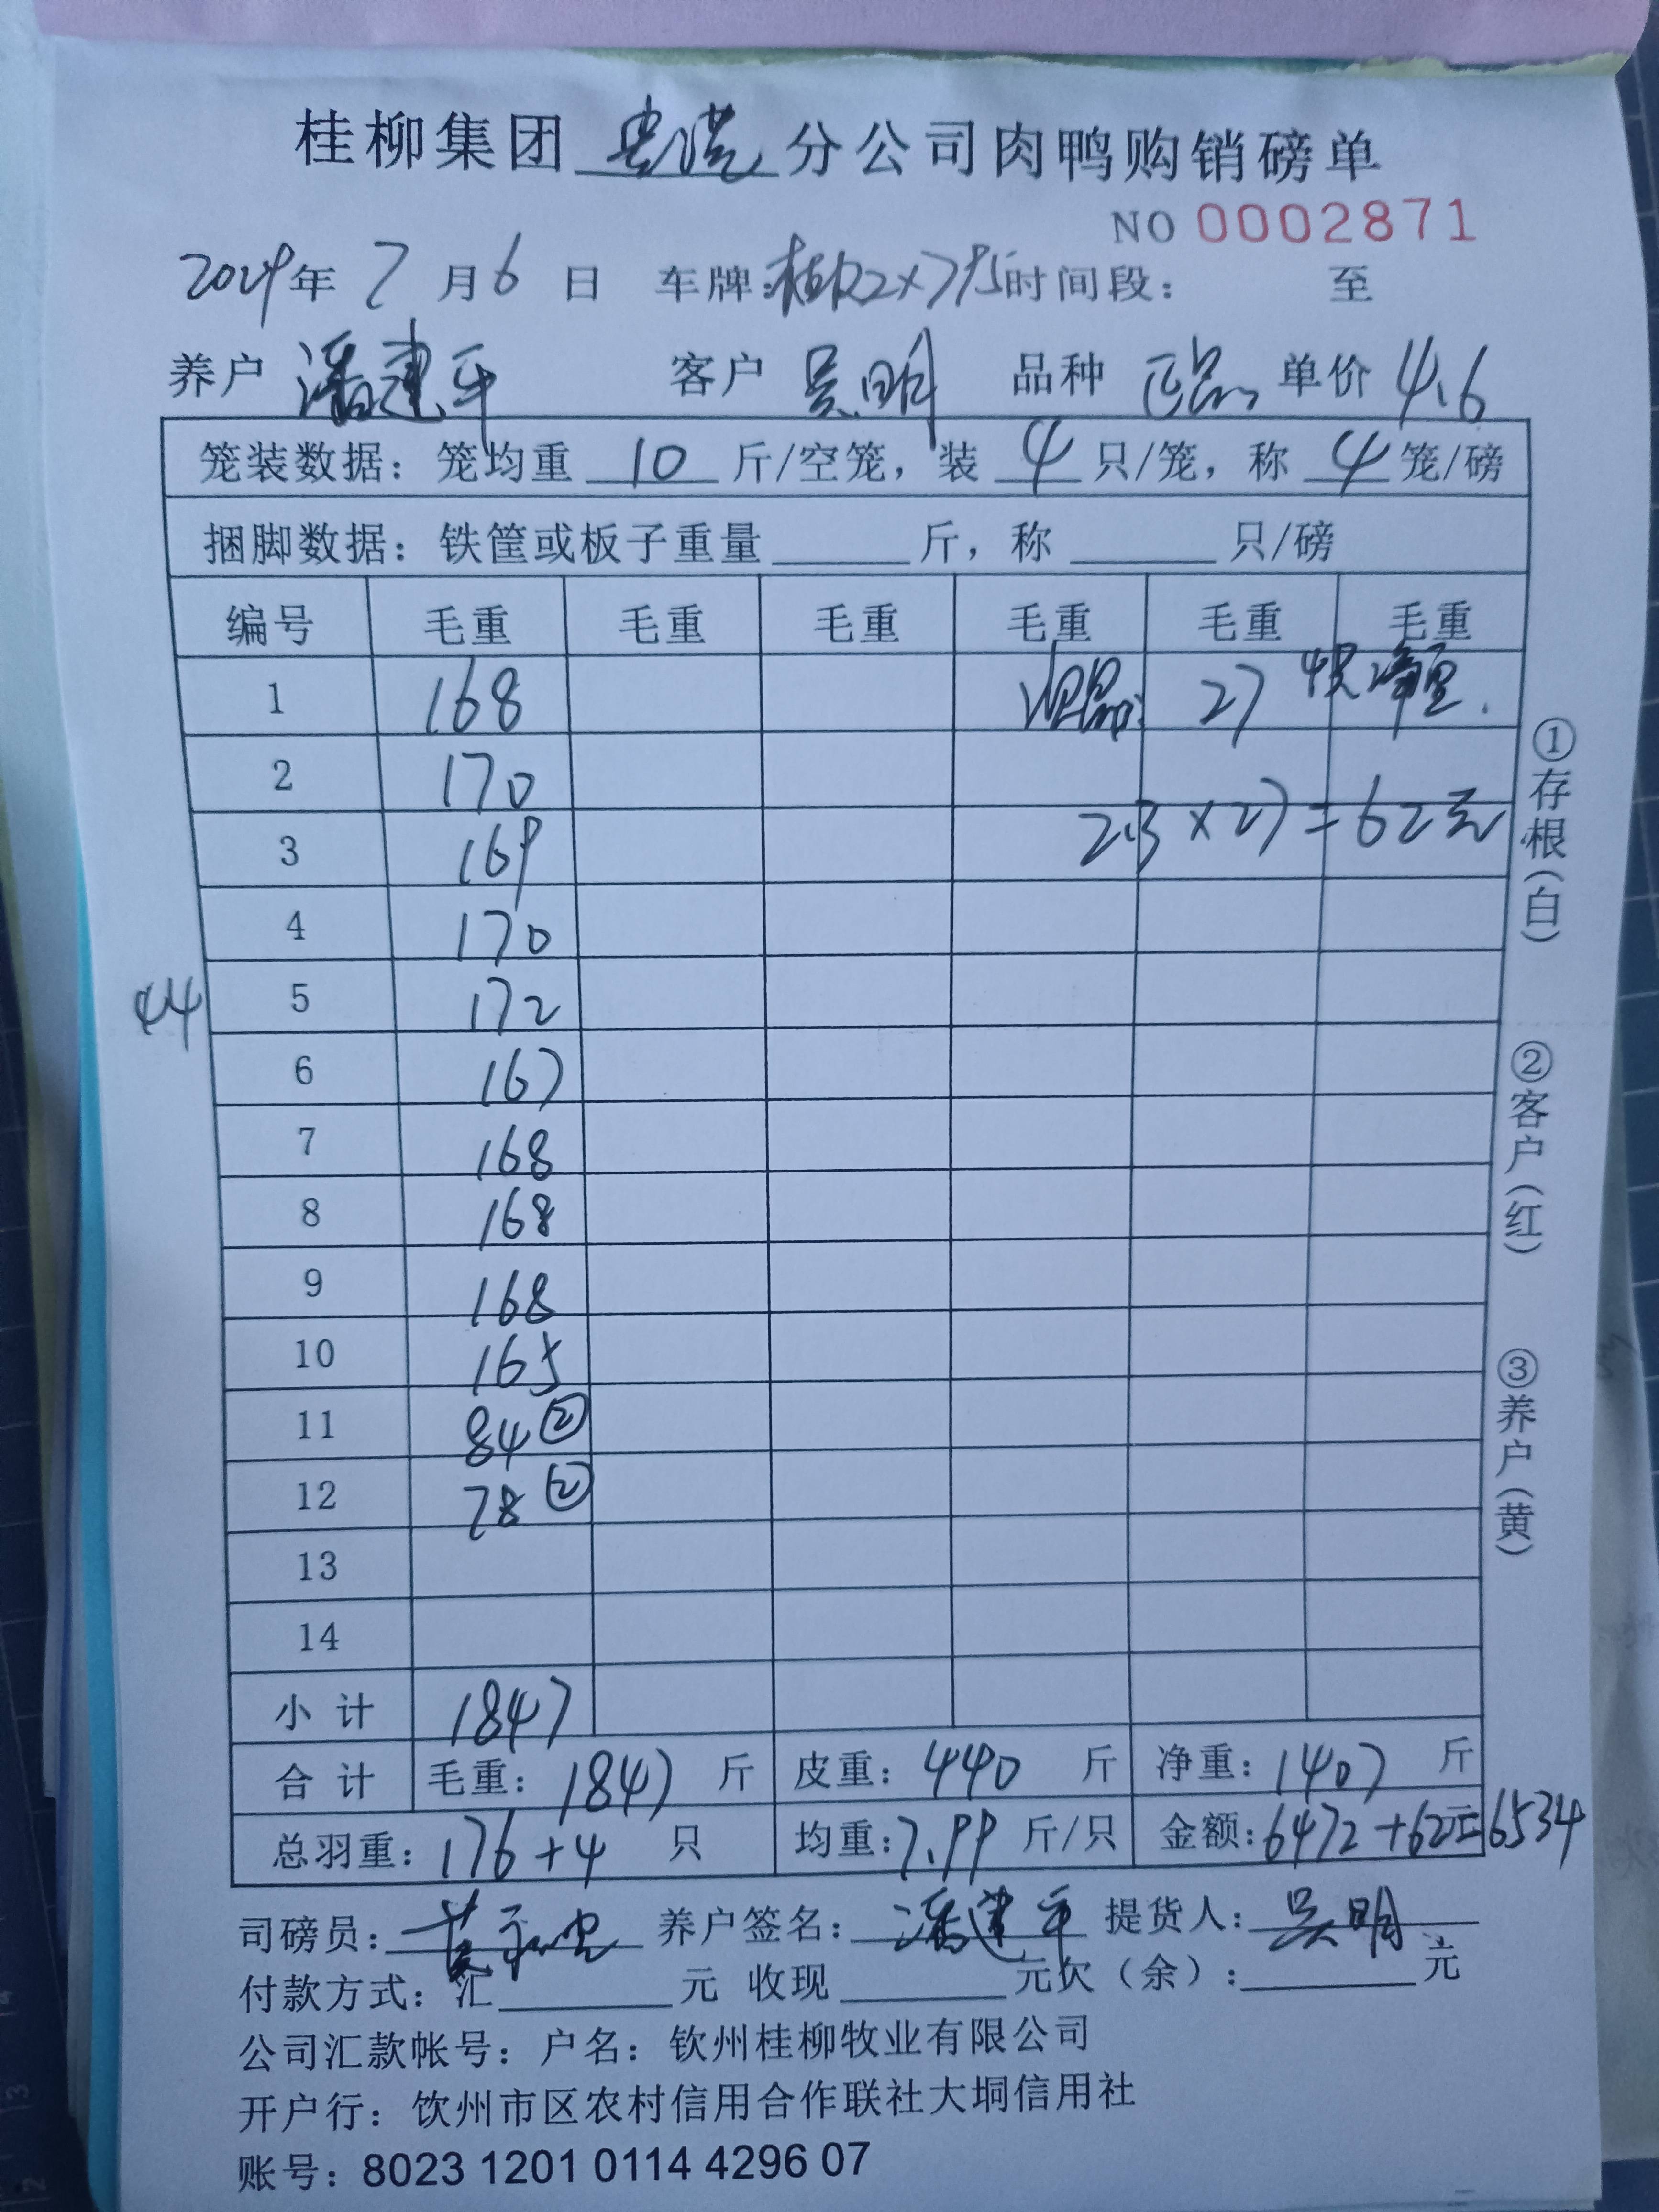 桂柳集团贵港分公司肉鸭购销磅单
NO 0002871
2024年7月6日 车牌: 时间段: 至
养户 潘建平 客户 吴明 品种 正品 单价 4.6
笼装数据: 笼均重 10 斤/空笼, 装 4 只/笼, 称 4 笼/磅
捆脚数据: 铁筐或板子重量 斤, 称 只/磅
编号 毛重 毛重 毛重 毛重 毛重 毛重
1 168 27 4只净重.
2 170
3 169 2.3×27=62元
4 170
44 5 172
6 167
7 168
8 168
9 168
10 165
11 84 ②
12 78 ②
13
14
小计 1847
合计 毛重: 1847 斤 皮重: 440 斤 净重: 1407 斤
总羽重: 176+4 只 均重: 7.99 斤/只 金额: 6472+62元=6534
司磅员: 养户签名: 潘建平 提货人: 吴明
付款方式: 汇 元 收现 元欠(余): 元
公司汇款帐号: 户名: 钦州桂柳牧业有限公司
开户行: 钦州市区农村信用合作联社大垌信用社
账号: 8023 1201 0114 4296 07
①存根(白)
②客户(红)
③养户(黄)